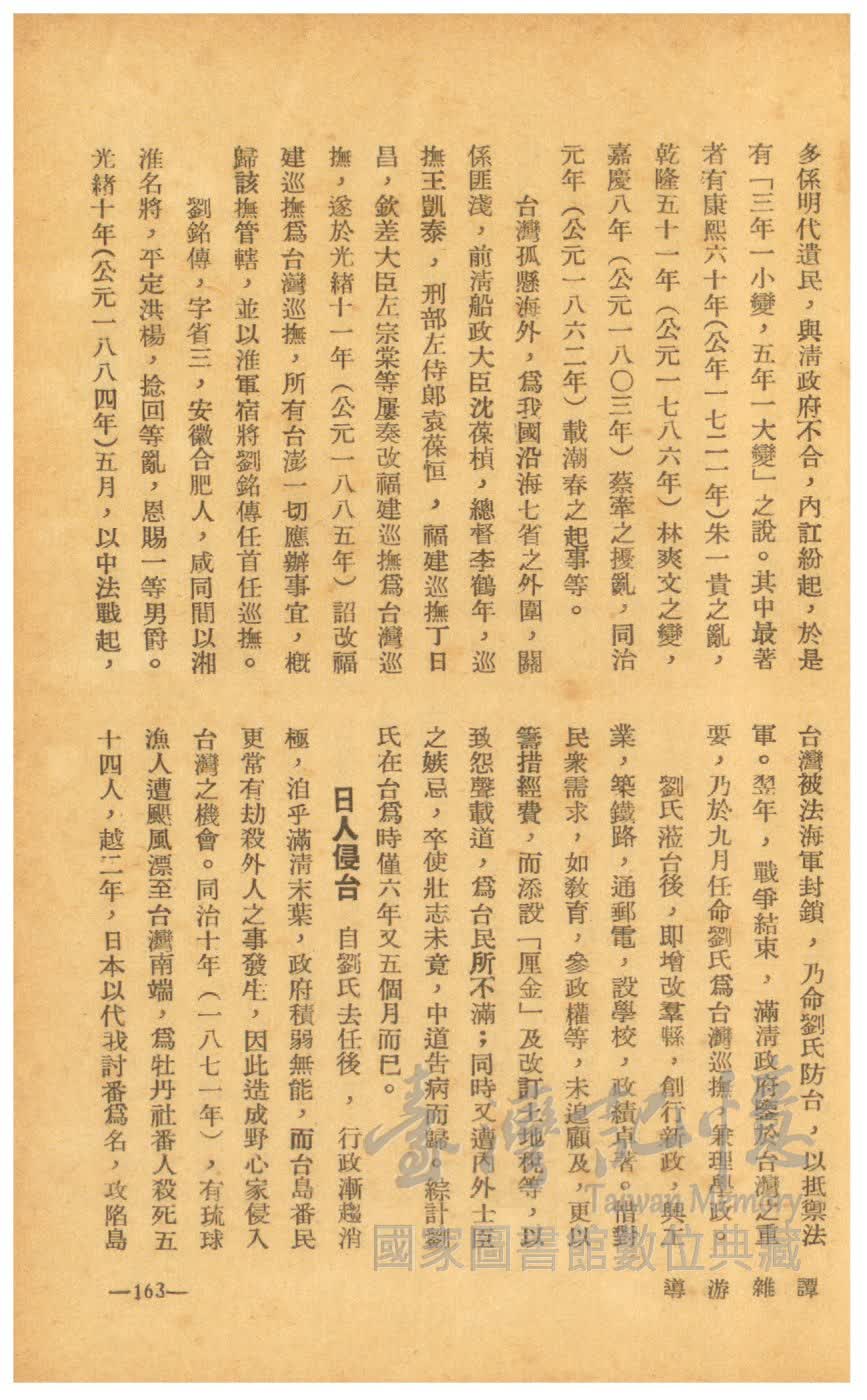 多係明代遺民，與淸政府不合，內訌紛起，於是
有「三年一小變，五年一大變」之說。其中最著
者有康熙六十年（公年一七二一年）朱一貴之亂，
乾隆五十一年（公元一七八六年）林爽文之變，
嘉慶八年（公元一八〇三年）蔡牽之擾亂，同治
元年（公元一八六二年）載潮春之起事等。
台灣孤懸海外，爲我國沿海七省之外圍，關
係匪淺，前淸船政大臣沈葆楨，總督李鶴年，巡
撫王凱泰，刑部左侍郞袁葆恒，福建巡撫丁日
昌，欽差大臣左宗棠等屢奏改福建巡撫爲台灣巡
撫，遂於光緖十一年（公元一八八五年）詔改福
建巡撫爲台灣巡撫，所有台澎一切應辦事宜，槪
歸該撫管轄，並以淮軍宿將劉銘傳任首任巡撫。
劉銘傳，字省三，安徽合肥人，咸同間以湘
淮名將，平定洪楊，捻回等亂，恩賜一等男爵。
光緖十年（公元一八八四年）五月，以中法戰起，
台灣被法海軍封鎖，乃命劉氏防台，以抵禦法
軍。翌年，戰爭結束，滿淸政府鑒於台灣之重
要，乃於九月任命劉氏爲台灣巡撫，兼理學政。
劉氏蒞台後，即增改羣縣，創行新政，興工
業，築鐵路，通郵電，設學校，政績卓著。惜對
民衆需求，如敎育，參政權等，未遑顧及，更以
籌措經費，而添設「厘金」及改訂土地稅等，以
致怨聲載道，爲台民所不滿；同時又遭內外士臣
之嫉忌，卒使壯志未竟，中道告病而歸。綜計劉
氏在台爲時僅六年又五個月而巳。
日人侵台　自劉氏去任後，行政漸趨消
極，洎乎滿淸末葉，政府積弱無能，而台島番民
更常有劫殺外人之事發生，因此造成野心家侵入
台灣之機會。同治十年（一八七一年），有琉球
漁人遭颶風漂至台灣南端，爲牡丹社番人殺死五
十四人，越二年，日本以代我討番爲名，攻陷島
譚雜游導
—163—
臺灣記憶
Taiwan Memory
國家圖書館數位典藏